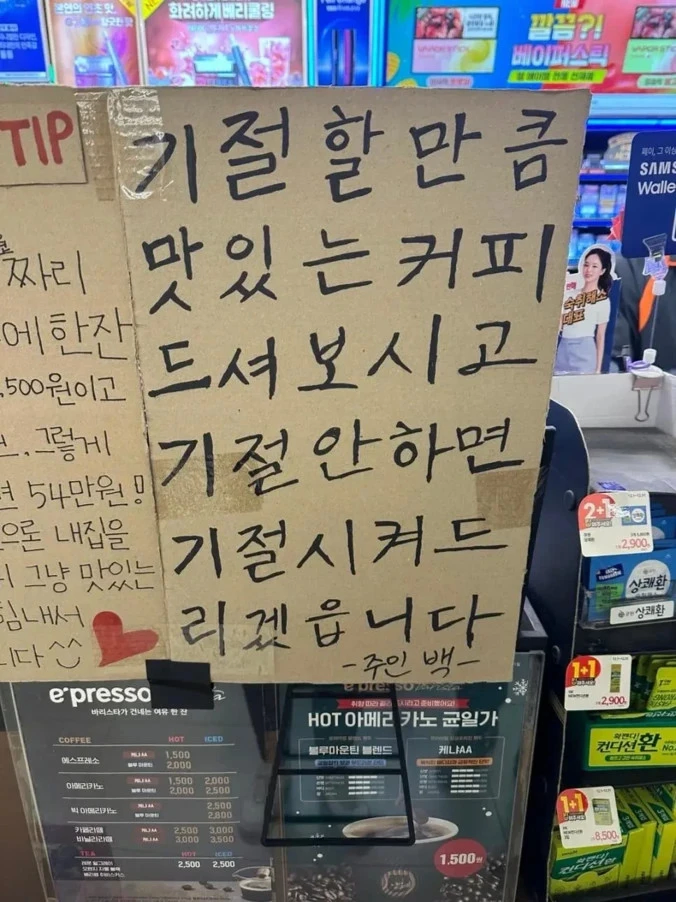 화려하게 베리쿨링
깔끔?!
베이퍼스틱
TIP
짜리
에 한잔
,500원이고
그렇게
면 54만원!
으론 내집을
그냥 맛있는
힘내서
니다
기절할만큼
맛있는 커피
드셔보시고
기절안하면
기절시켜드
리겠읍니다
-주인 백-
SAMS
Walle
숙취해소
대표
e·presso
바리스타가 건네는 여유 한 잔
COFFEE HOT ICED
에스프레소 케냐AA 1,500
블루 마운틴 2,000
아메리카노 케냐AA 1,500 2,000
블루 마운틴 2,000 2,500
빅 아메리카노 케냐AA 2,500
블루 마운틴 2,800
카페라떼 케냐AA 2,500 3,000
바닐라라떼 케냐AA 3,000 3,500
TEA HOT ICED
2,500 2,500
HOT 아메리카노 균일가
블루마운틴 블렌드
케냐AA
1,500원
2+1
2,900
상쾌환
상쾌환
1+1
2,900
컨디션환
1+1
8,500